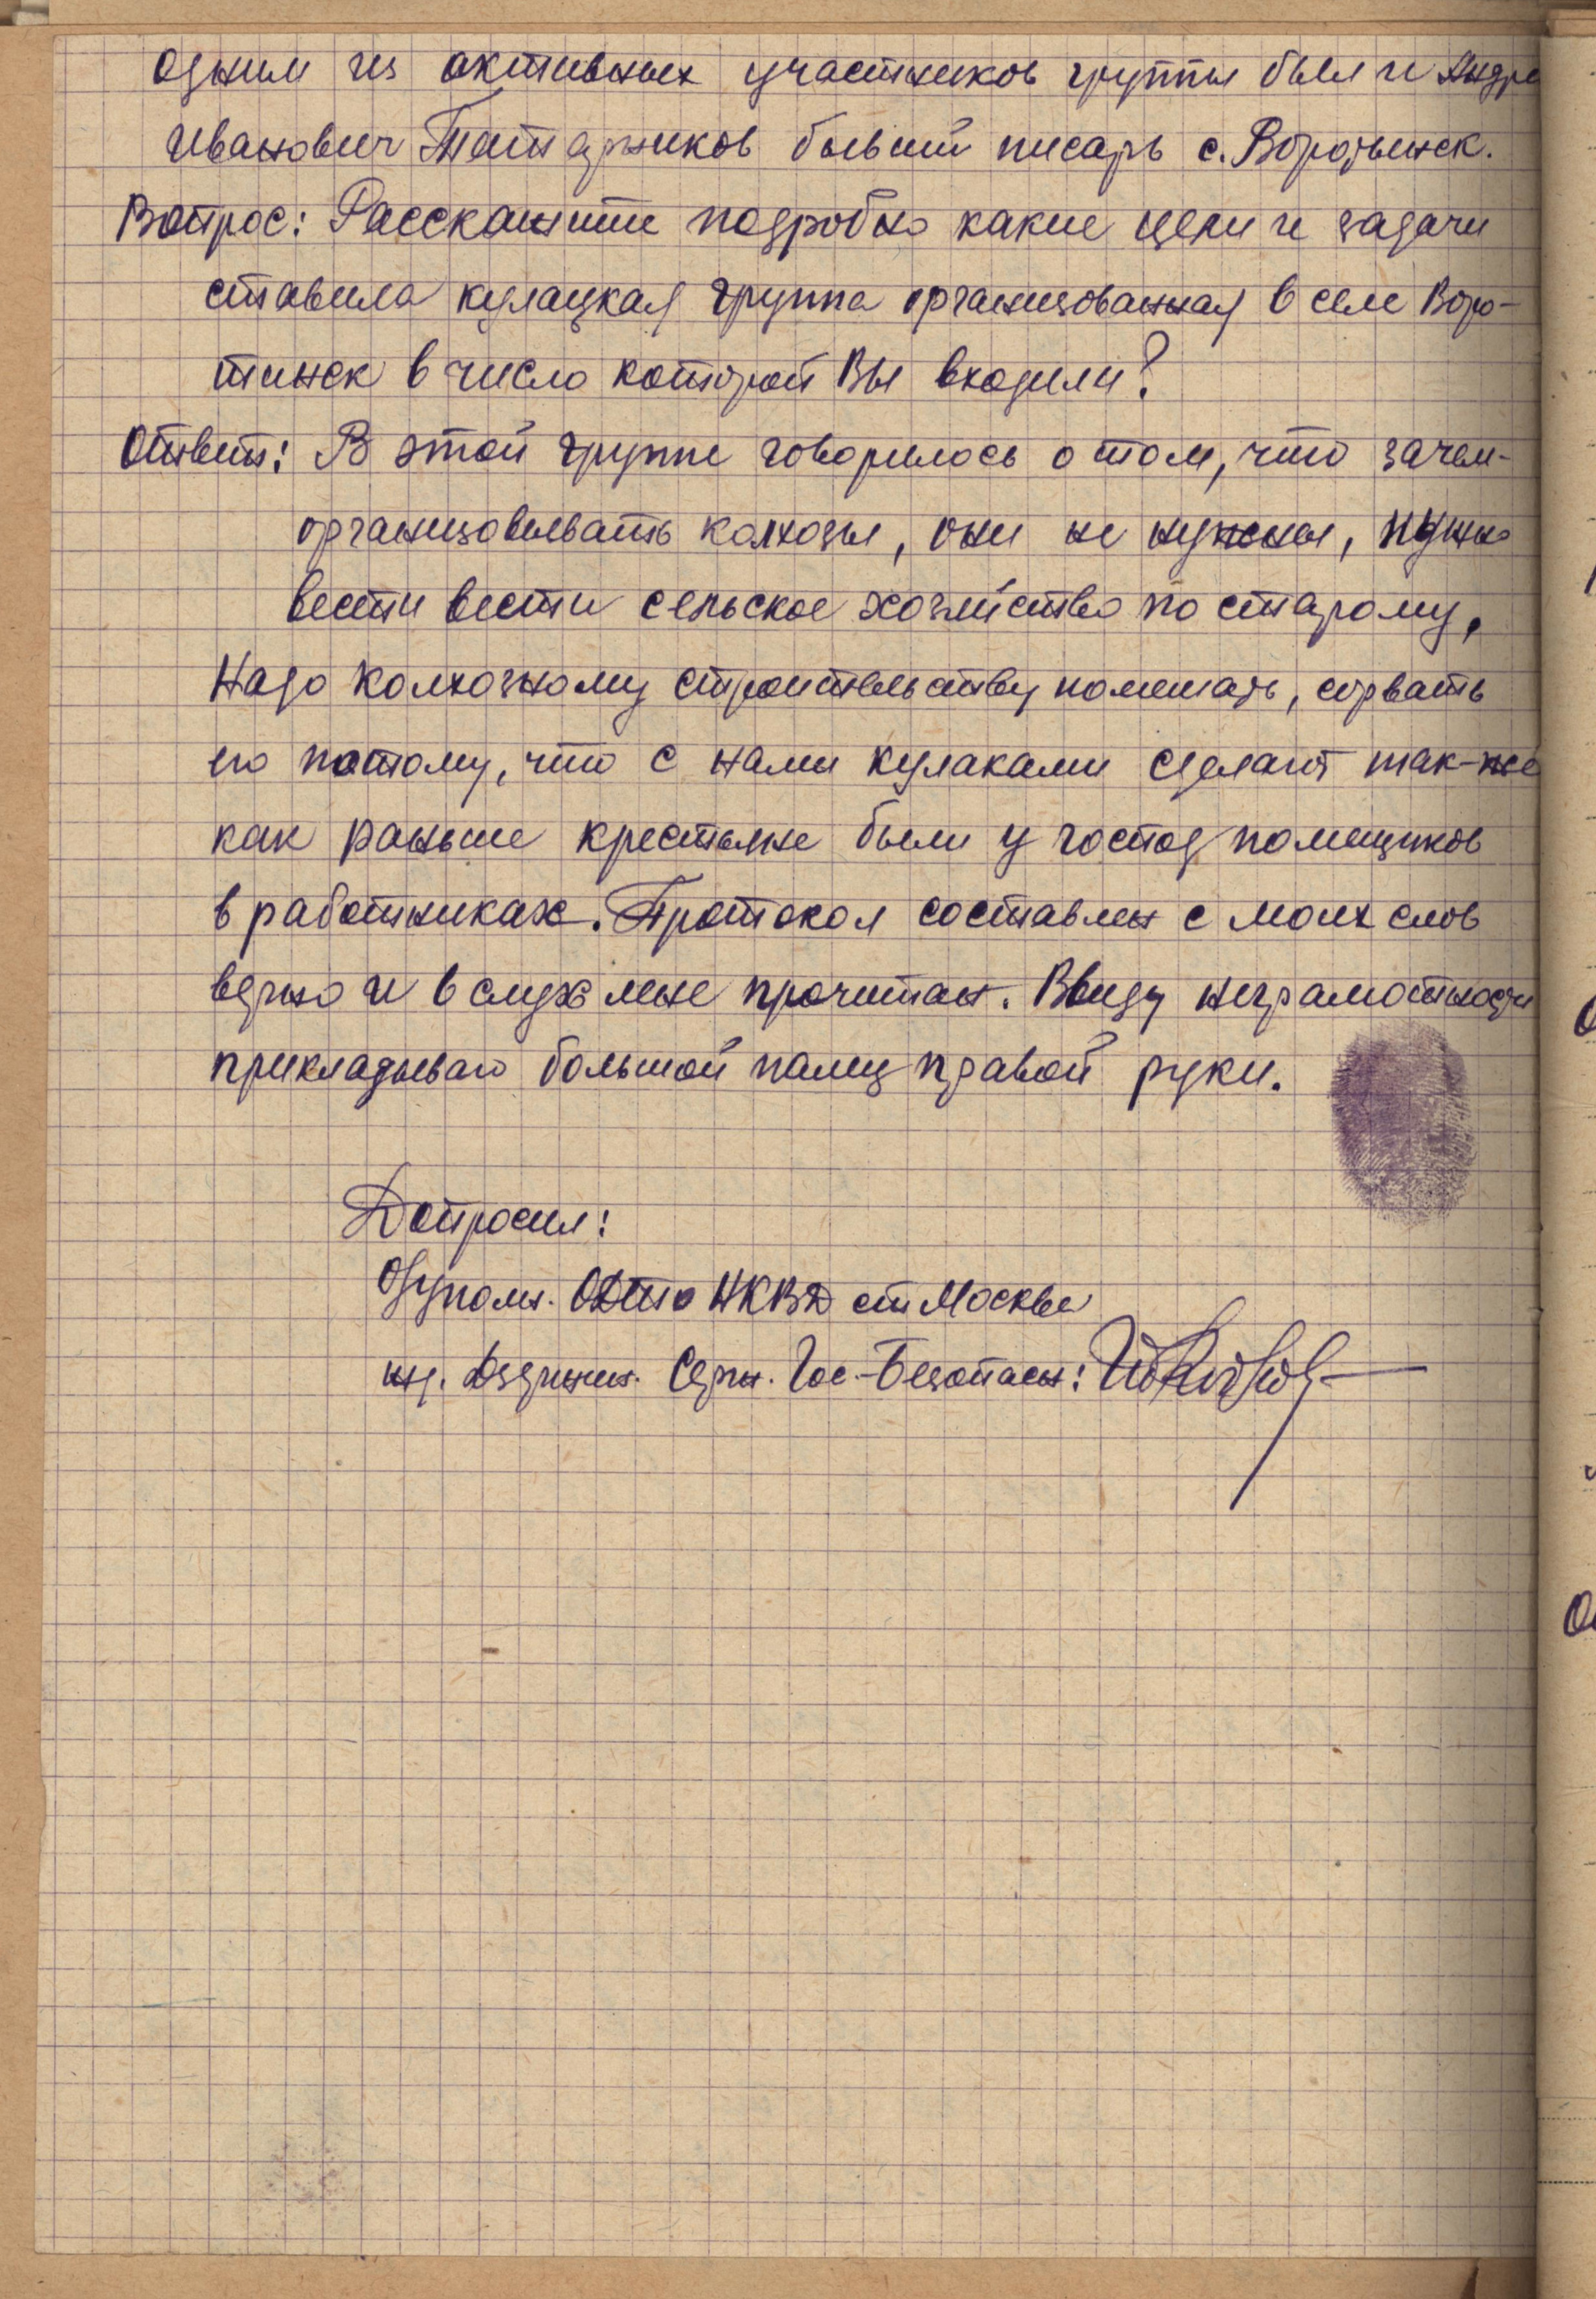 одним из активных участников группы был и Андре
Иванович Татарников бывший писарь с. Воротынск.
Вопрос: Расскажите подробно какие цели и задачи
ставила кулацкая группа организованная в селе Воро-
тынск в число которой Вы входили?
Ответ: В этой группе говорилось о том, что зачем-
организовывать колхозы, они не нужны, нужно
вести вести сельское хозяйство по старому,
Надо колхозному строительству помешать, сорвать
его потому, что с нами кулаками сделают так-же
как раньше крестьяне были у господ помещиков
в работниках. Протокол составлен с моих слов
верно и в слух мне прочитан. Ввиду неграмотности
прикладываю большой палец правой руки.
Допросил:
НКВД ст Москва
Дзержин. Серж. Гос-Безопасн: